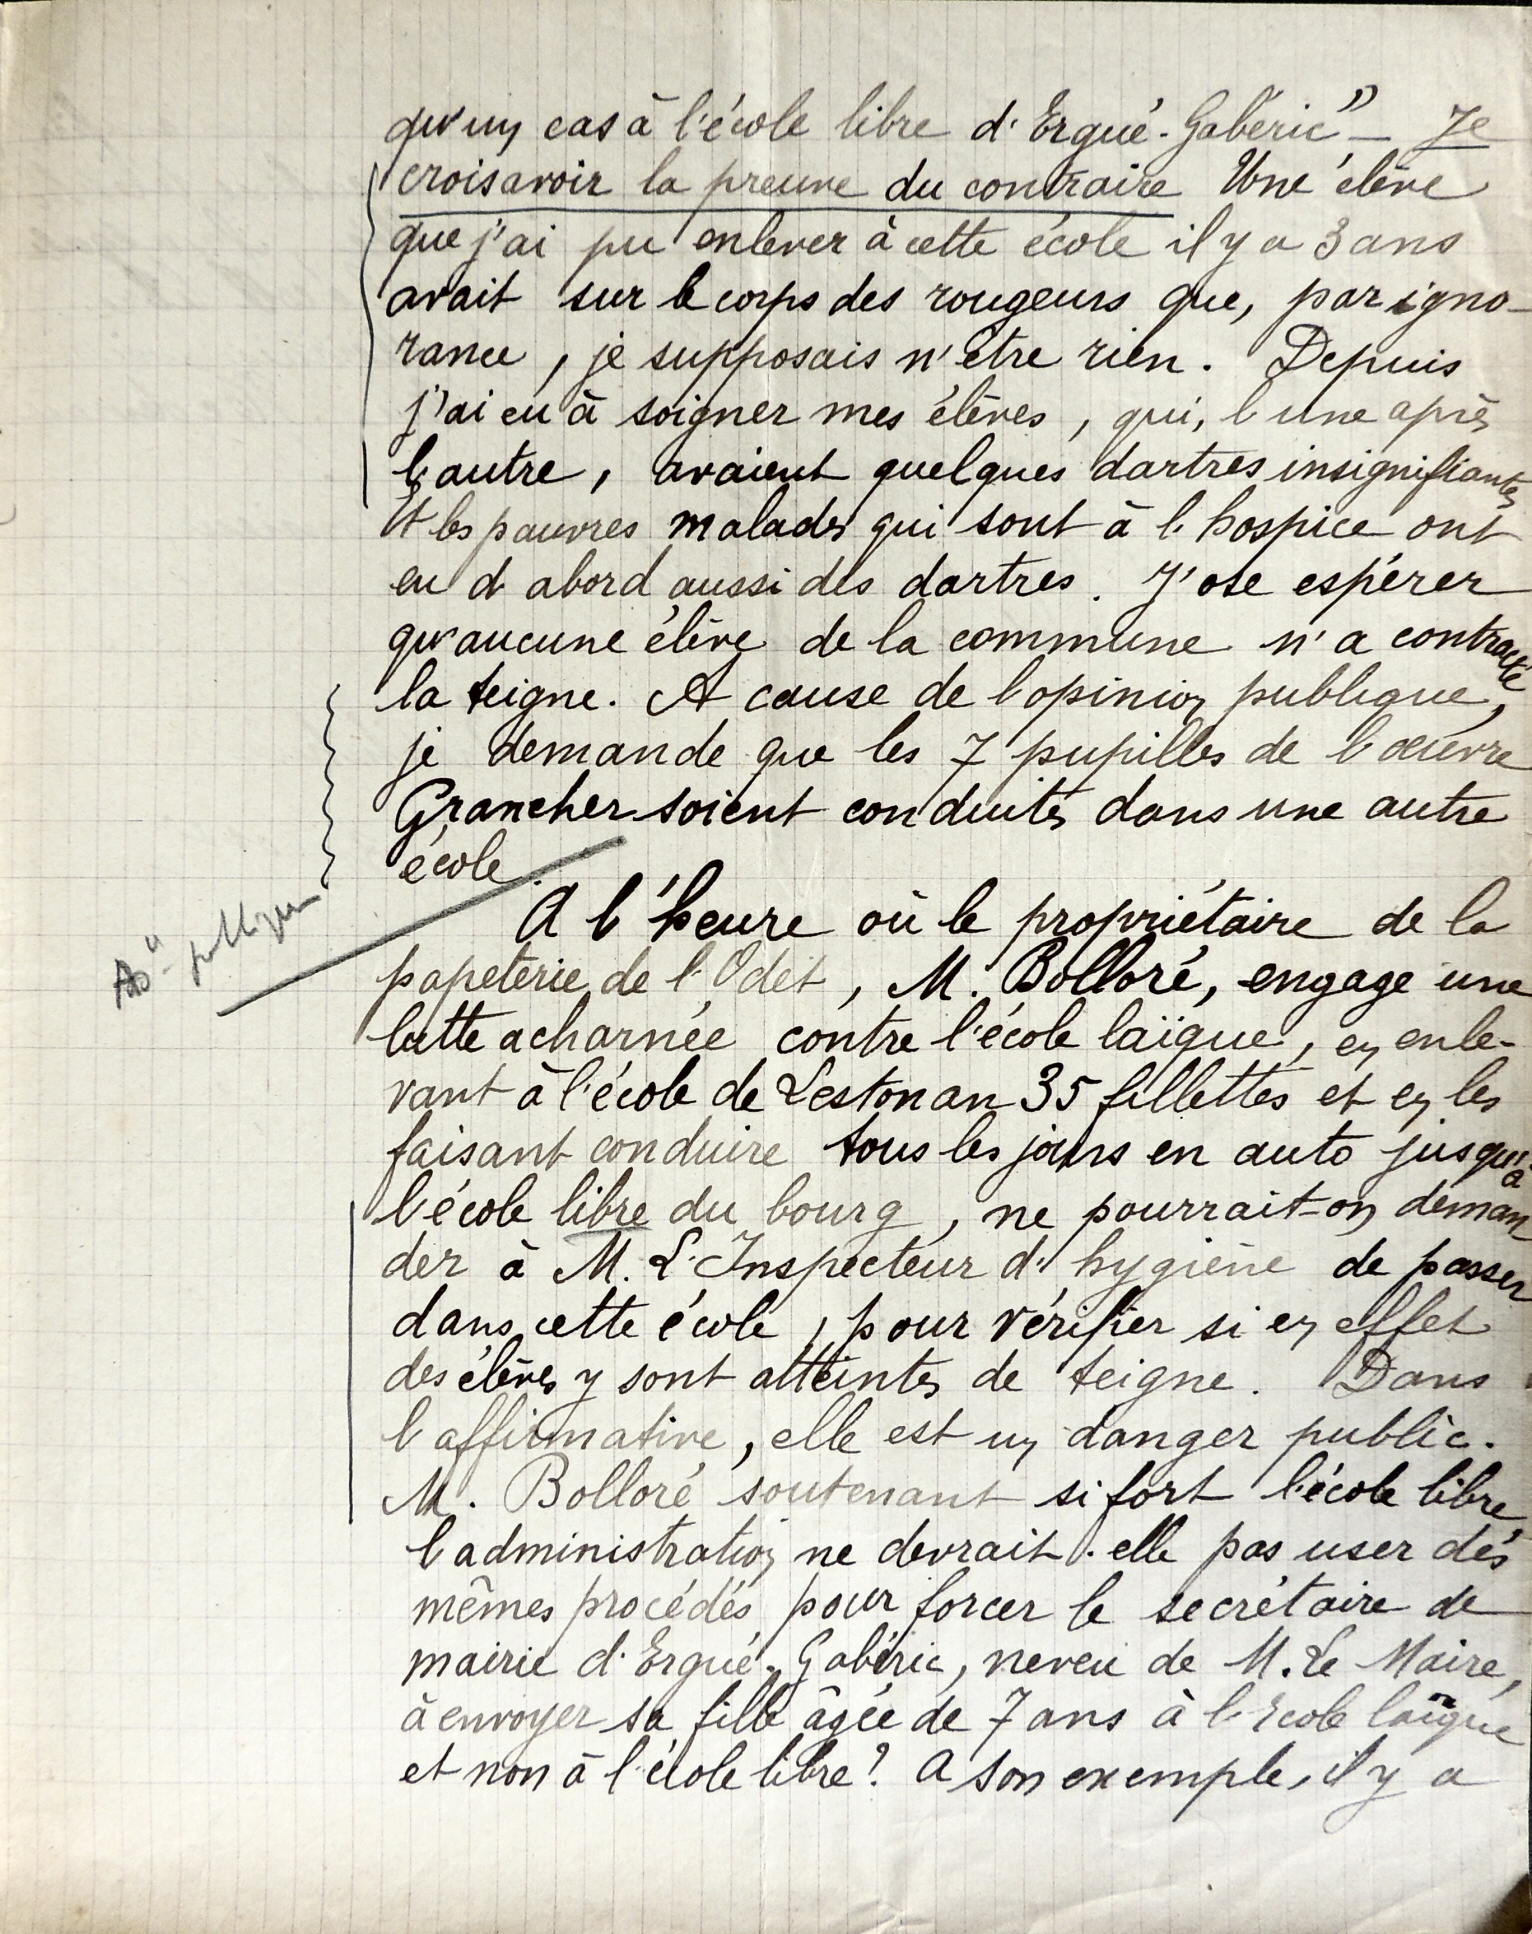 qu'un cas à l'école libre d'Ergué-Gabéric" - Je
crois avoir la preuve du contraire Une élève
que j'ai pu enlever à cette école il y a 3 ans
avait sur le corps des rougeurs que, par igno-
rance, je supposais n'être rien. Depuis
j'ai eu à soigner mes élèves, qui, l'une après
l'autre, avaient quelques dartres insignifiantes
Et les pauvres malades qui sont à l'hospice ont
eu d'abord aussi des dartres. J'ose espérer
qu'aucune élève de la commune n'a contracté
la teigne. A cause de l'opinion publique,
je demande que les 7 pupilles de l'œuvre
Grancher soient conduites dans une autre
école.
A l'heure où le propriétaire de la
papeterie de l'Odet, M. Bolloré, engage une
lutte acharnée contre l'école laïque, en enle-
vant à l'école de Lestonan 35 fillettes et en les
faisant conduire tous les jours en auto jusqu'à
l'école libre du bourg, ne pourrait-on deman
der à M. L'Inspecteur d'hygiène de passer
dans cette école, pour vérifier si en effet
des élèves y sont atteintes de teigne. Dans
l'affirmative, elle est un danger public.
M. Bolloré soutenant si fort l'école libre,
l'administration ne devrait-elle pas user des
mêmes procédés pour forcer le secrétaire de
mairie d'Ergué-Gabéric, neveu de M. Le Maire,
à envoyer sa fille âgée de 7 ans à l'Ecole laïque
et non à l'école libre? A son exemple, il y a